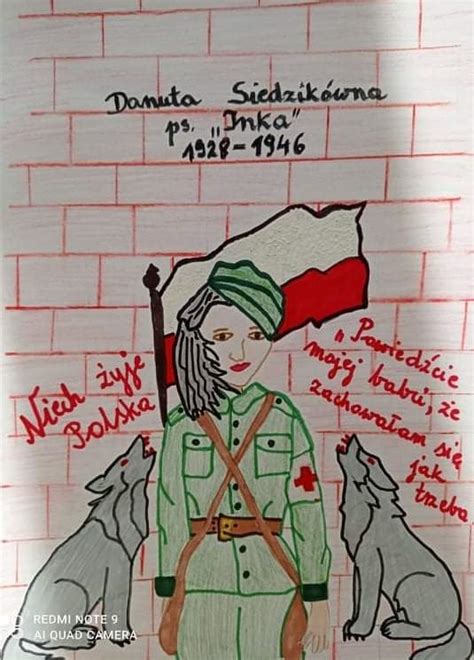 Danuta Siedzikówna
ps. „Inka"
1928-1946
Niech żyje
Polska
„Powiedźcie
mojej babci, że
zachowałam się
jak
trzeba
REDMI NOTE 9
AI QUAD CAMERA